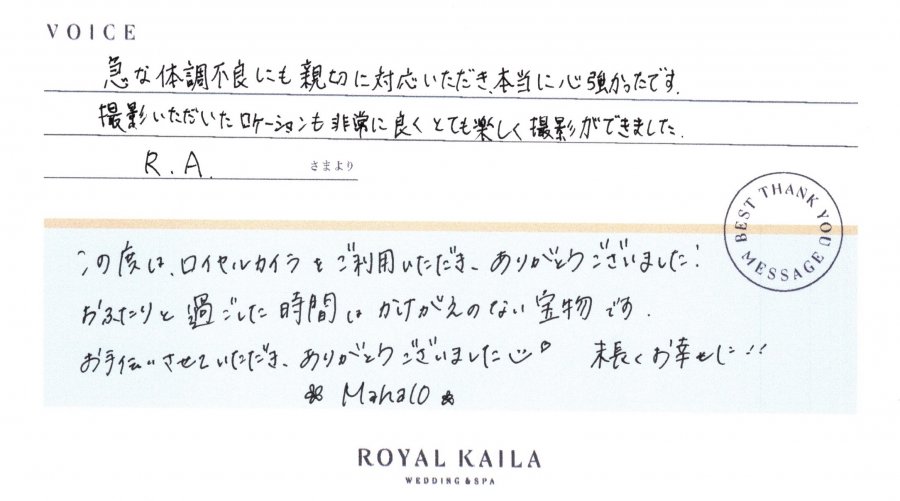 VOICE
急な体調不良にも親切に対応いただき、本当に心強かったです。
撮影いただいたロケーションも非常に良くとても楽しく撮影ができました。
R.A. さまより
BEST THANK YOU MESSAGE
この度は、ロイヤルカイラをご利用いただき、ありがとうございました!
おふたりと過ごした時間はかけがえのない宝物です。
お手伝いさせていただき、ありがとうございました 末長くお幸せに!!
Mahalo
ROYAL KAILA
WEDDING & SPA